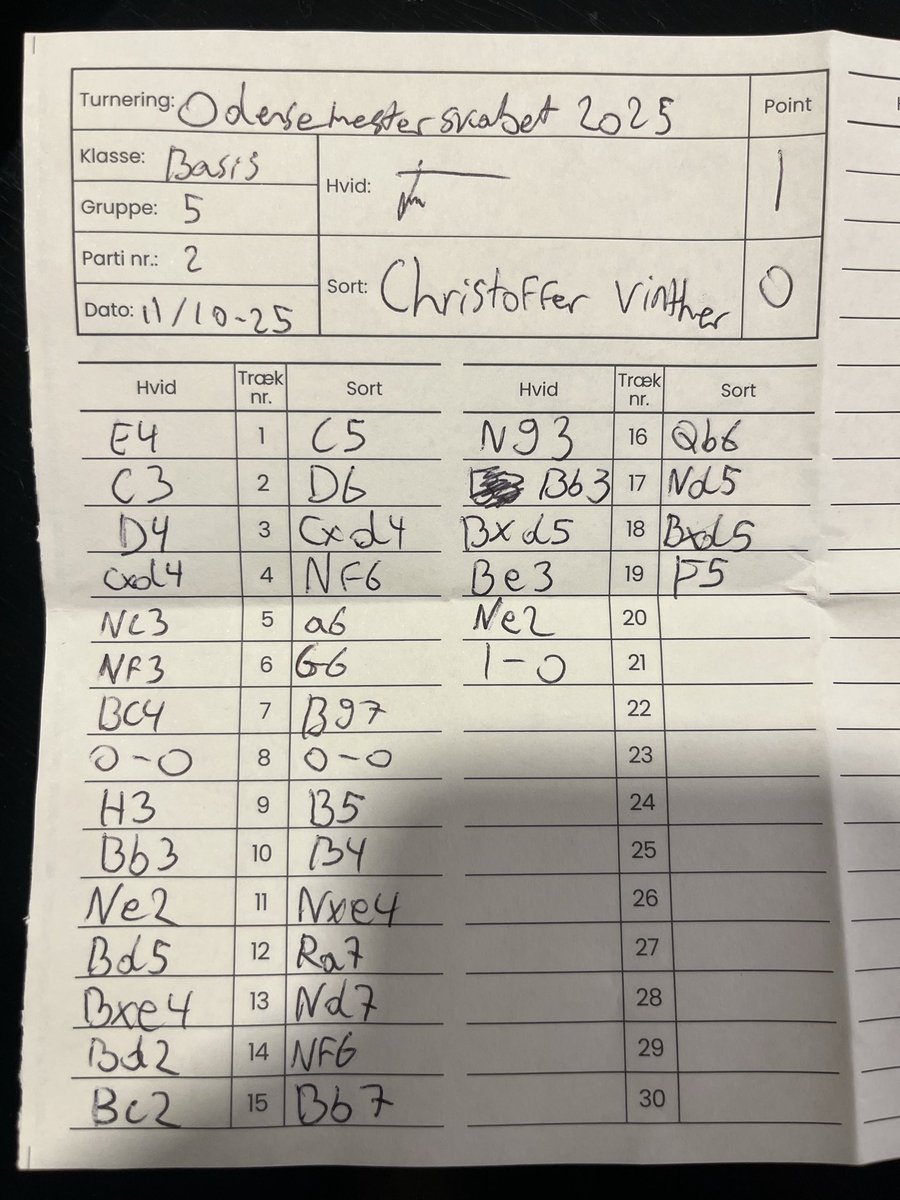 Turnering: Odensemesterskabet 2025
Point
Klasse: Basis
Hvid:
1
Gruppe: 5
Parti nr.: 2
Sort: Christoffer Vinther
0
Dato: 11/10-25
Hvid Træk nr. Sort
E4 1 C5
C3 2 D6
D4 3 Cxd4
cxd4 4 NF6
Nc3 5 a6
NF3 6 G6
BC4 7 Bg7
0-0 8 0-0
H3 9 B5
Bb3 10 B4
Ne2 11 Nxe4
Bd5 12 Ra7
Bxe4 13 Nd7
Bd2 14 NF6
Bc2 15 Bb7
Hvid Træk nr. Sort
Ng3 16 Qb6
Bb3 17 Nd5
Bxd5 18 Bxd5
Be3 19 F5
Ne2 20
1-0 21
22
23
24
25
26
27
28
29
30